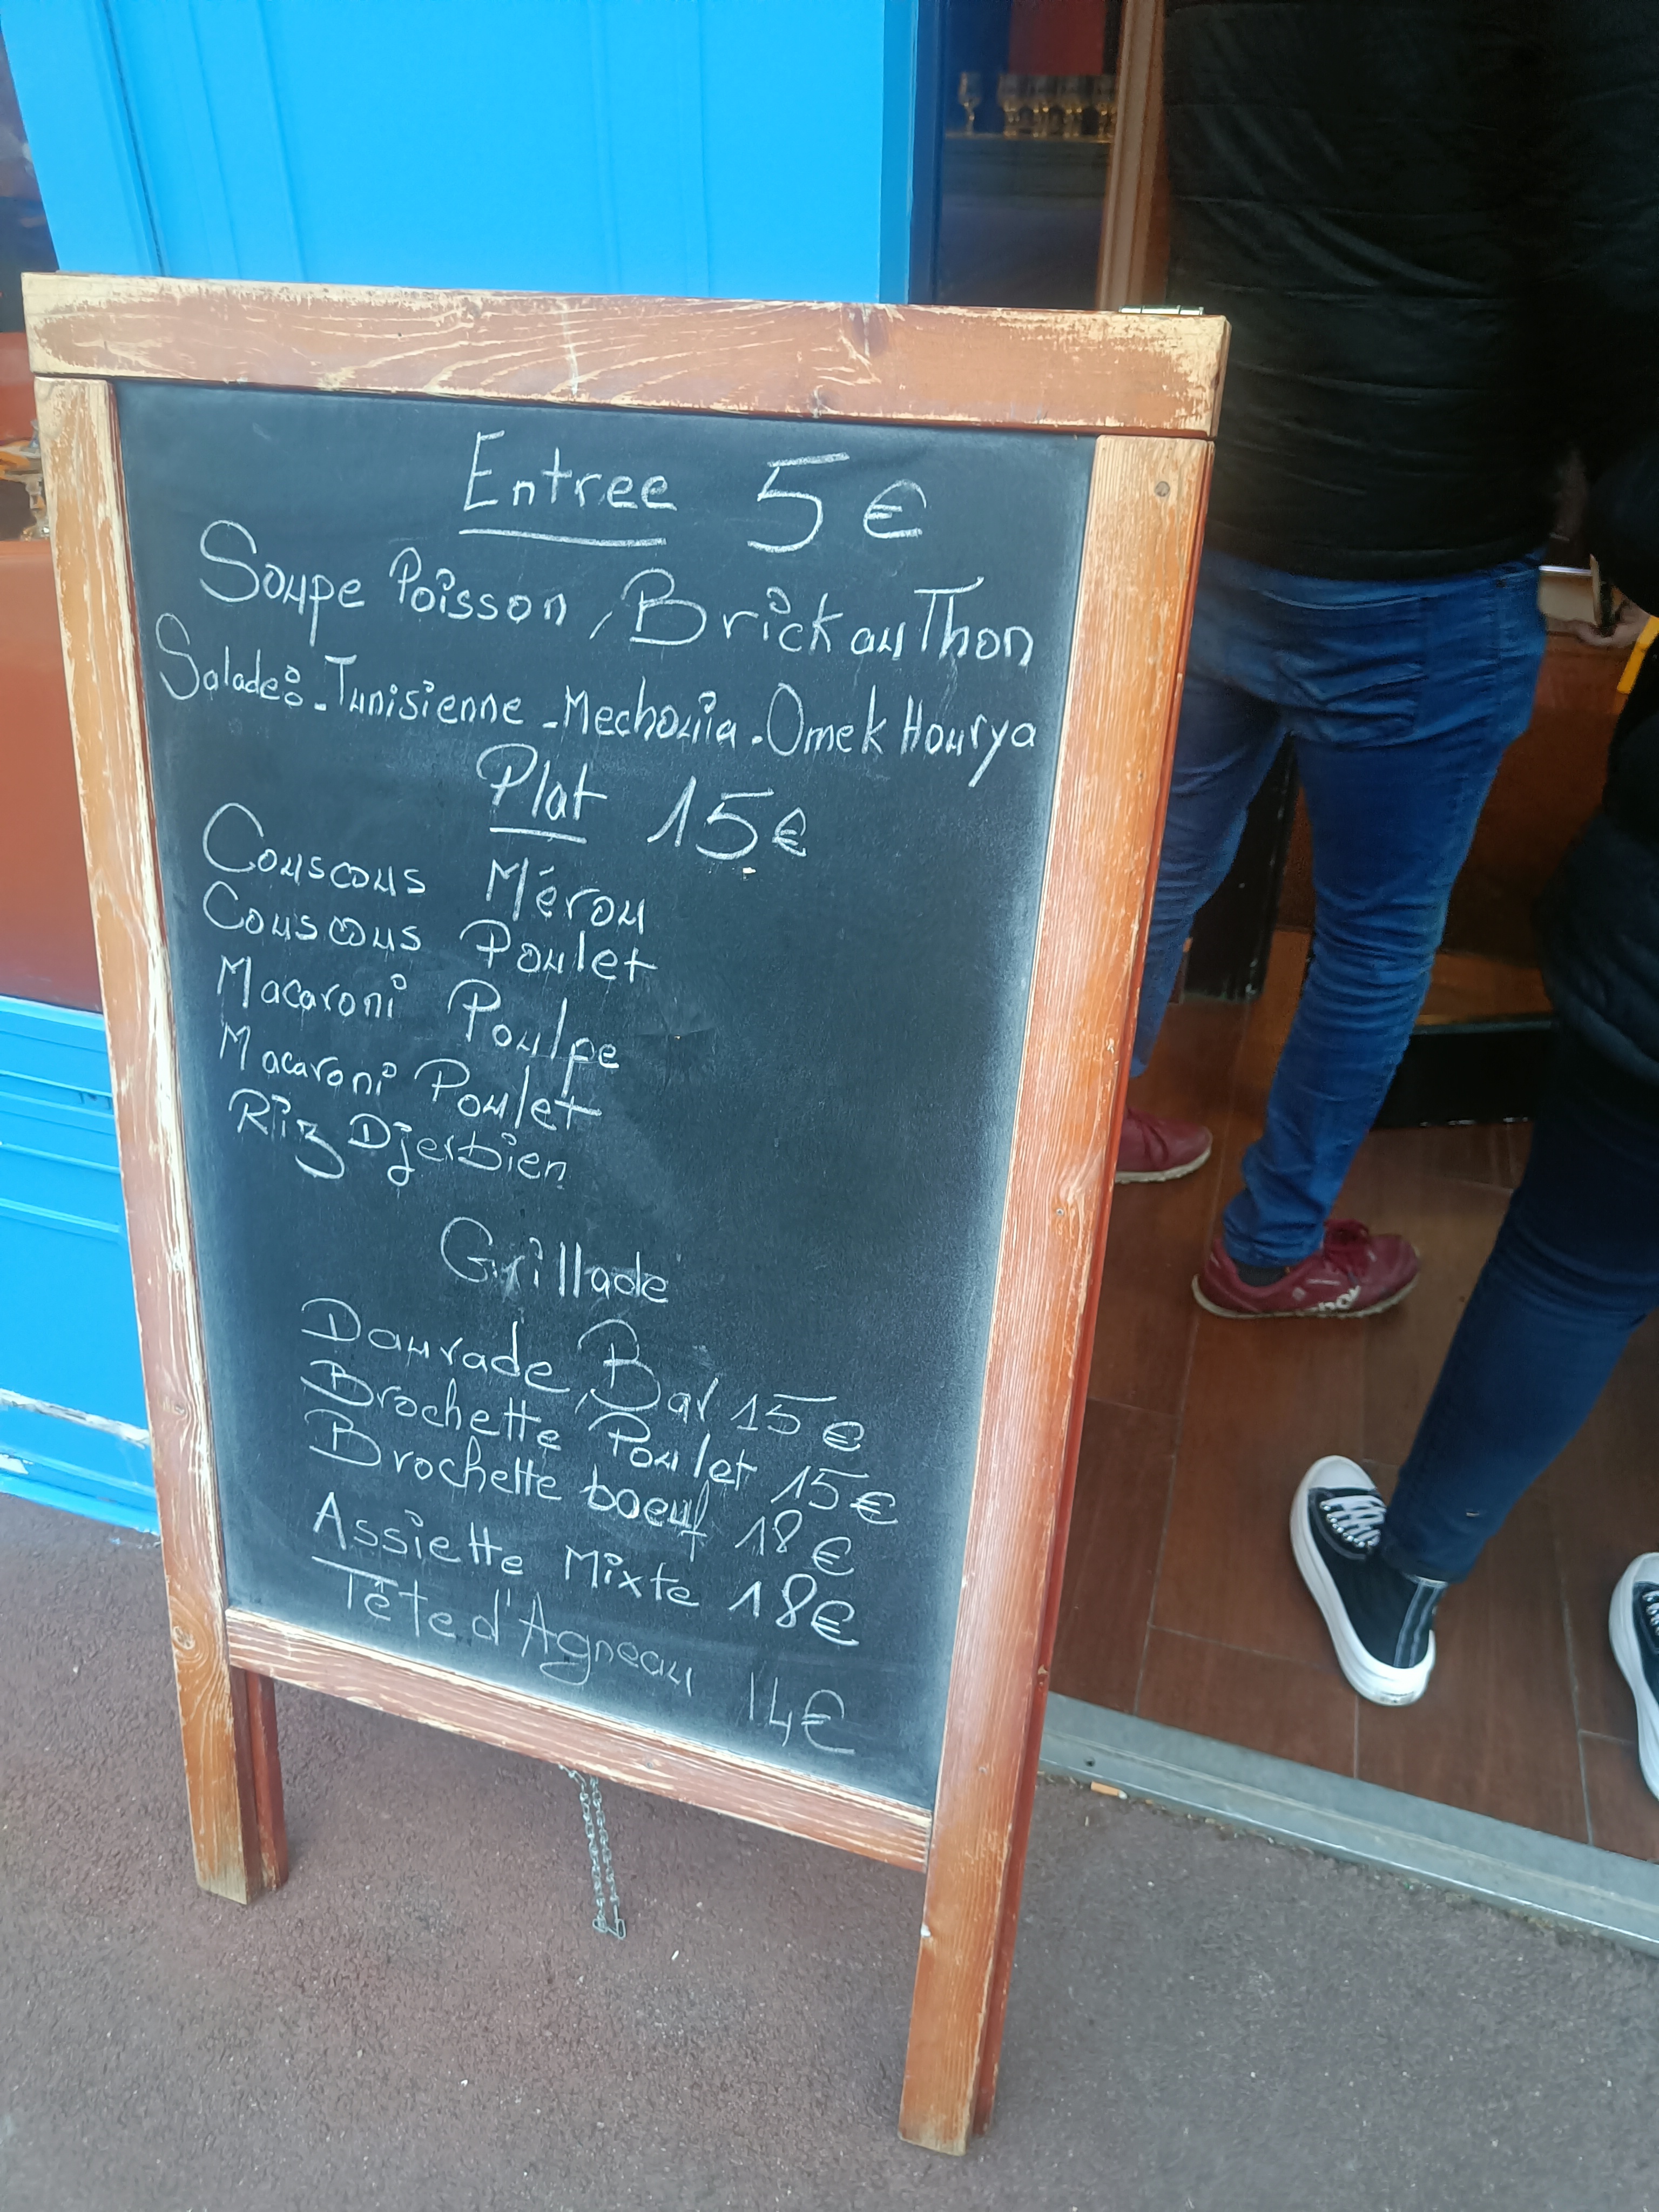 Entree 5€
Soupe Poisson, Brick au Thon
Salades - Tunisienne - Mechouia - Omek Hourya
Plat 15€
Couscous Mérou
Couscous Poulet
Macaroni Poulpe
Macaroni Poulet
Riz Djerbien
Grillade
Daurade, Bar 15€
Brochette Poulet 15€
Brochette boeuf 18€
Assiette Mixte 18€
Tête d'Agneau 14€